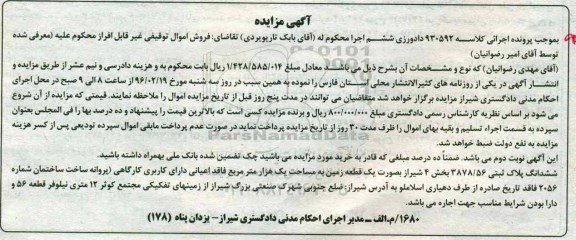 آگهی مزایده
بموجب پرونده اجرائی کلاسه ۹۳۰۵۹۲ دادورزی ششم اجرا محکوم له (آقای بابک تاریوپردی) تقاضای: فروش اموال توقیفی غیر قابل افراز محکوم علیه (معرفی شده توسط آقای امیر رضوانیان)
(آقای مهدی رضوانیان) که نوع و مشخصات آن بشرح ذیل می‌باشد. معادل مبلغ ۱/۴۲۸/۵۸۵/۰۱۴ ریال بابت محکوم به و هزینه دادرسی و نیم عشر از طریق مزایده و
انتشار آگهی در یکی از روزنامه های کثیرالانتشار محلی استان فارس را نموده به همین سبب در روز سه شنبه مورخ ۹۶/۰۲/۱۹ از ساعت ۸ الی ۹ صبح در محل اجرای
احکام مدنی دادگستری شیراز مزایده برگزار خواهد شد متقاضیان می توانند در مدت پنج روز قبل از تاریخ مزایده اموال را ملاحظه نمایند. قیمتی که مزایده از آن شروع
می شود بر اساس نظریه کارشناس رسمی دادگستری مبلغ ۸۰۰/۰۰۰/۰۰۰ ریال و برنده مزایده کسی است که بالاترین قیمت را پیشنهاد و ده درصد بها را فی المجلس بعنوان
سپرده به قسمت اجراء تسلیم و بقیه بهای اموال را ظرف مدت ۳۰ روز از تاریخ مزایده پرداخت نماید در صورت عدم پرداخت مابقی اموال سپرده تودیعی پس از کسر هزینه
مزایده به نفع دولت ضبط خواهد شد.
این آگهی نوبت دوم می باشد. ضمناً ده درصد مبلغی که قادر به خرید مورد مزایده می باشید چک تضمین شده بانک ملی بهمراه داشته باشید.
ششدانگ پلاک ثبتی ۳۸۷۸/۵۶ بخش ۴ شیراز بصورت یک قطعه زمین به مساحت یک هزار متر مربع فاقد اعیانی دارای کاربری کارگاهی (پروانه ساخت ساختمان شماره
۲۰۵۶ فاقد تاریخ صادره از طرف دهیاری اسلاملو به آدرس شیراز: ضلع جنوبی شهرک صنعتی بزرگ شیراز از زمینهای تفکیکی مجتمع کوثر ۱۲ متری نیلوفر قطعه ۵۶ و
دارا بودن شرایط مناسب جهت اجاره می باشد.
۱۶۸۰/م.الف ــ مدیر اجرای احکام مدنی دادگستری شیراز- یزدان پناه (۱۷۸)
ParsNamadData